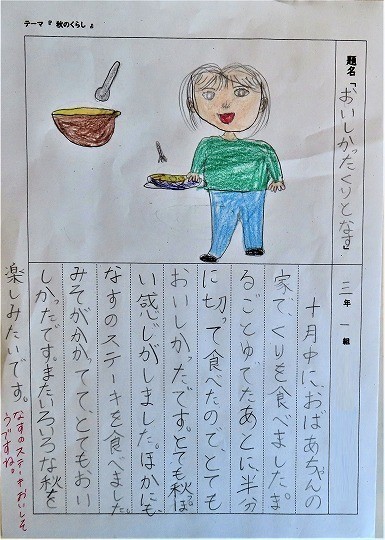 テーマ『 秋のくらし 』
題名「おいしかったくりとなす」
三年 一組
十月中に、おばあちゃんの
家で、くりを食べました。ま
るごとゆでたあとに、半分
に切って食べたので、とても
おいしかったです。とても秋ぽ
い感じがしました。ほかにも、
なすのステーキを食べました。
みそがかかてて、とてもおい
しかったです。またいろいろな秋を
楽しみたいです。
なすのステーキおいしそ
うですね。